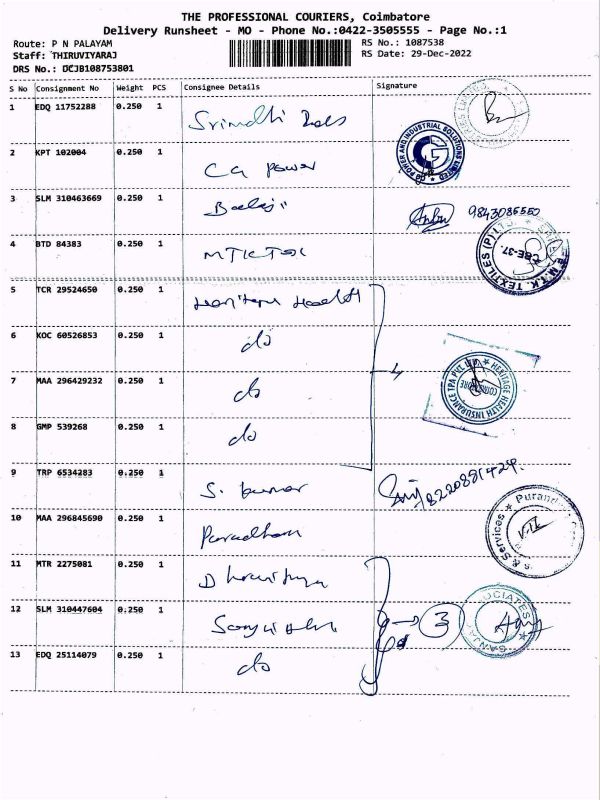 THE PROFESSIONAL COURIERS, Coimbatore
Delivery Runsheet - MO - Phone No.:0422-3505555 - Page No.:1
Route: P N PALAYAM
Staff: THIRUVIYARAJ
DRS No.: DCJB108753801
RS No.: 1087538
RS Date: 29-Dec-2022
S No Consignment No Weight PCS Consignee Details Signature
1 EDQ 11752288 0.250 1
2 KPT 102004 0.250 1 CG power
POWER AND INDUSTRIAL SOLUTIONS LIMITED
3 SLM 310463669 0.250 1 Balaji
9843085550
4 BTD 84383 0.250 1
M.T.K. TEXTILES (P) LTD
CBE-37.
5 TCR 29524650 0.250 1
6 KOC 60526853 0.250 1 do
4
7 MAA 296429232 0.250 1 do
HERITAGE HEALTH INSURANCE TPA PVT. LTD
COIMBATORE
8 GMP 539268 0.250 1 do
9 TRP 6534283 0.250 1 S. kumar
8220891424
10 MAA 296845690 0.250 1
& Services
11 MTR 2275081 0.250 1
12 SLM 310447604 0.250 1
3
13 EDQ 25114079 0.250 1 do